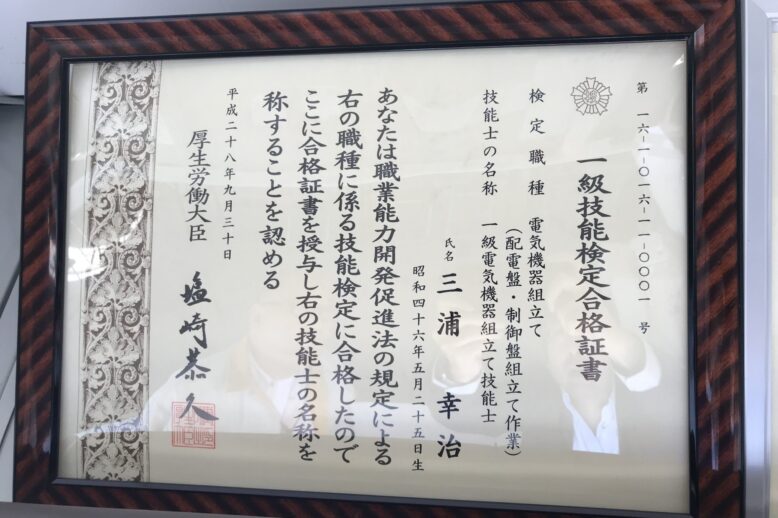 第 一六-一-〇一六-一一-〇〇〇一 号
一級技能検定合格証書
検定職種 電気機器組立て
(配電盤・制御盤組立て作業)
技能士の名称 一級電気機器組立て技能士
氏名 三浦幸治
昭和四十六年五月二十五日生
あなたは職業能力開発促進法の規定による
右の職種に係る技能検定に合格したので
ここに合格証書を授与し右の技能士の名称を
称することを認める
平成二十八年九月三十日
厚生労働大臣 塩崎恭久